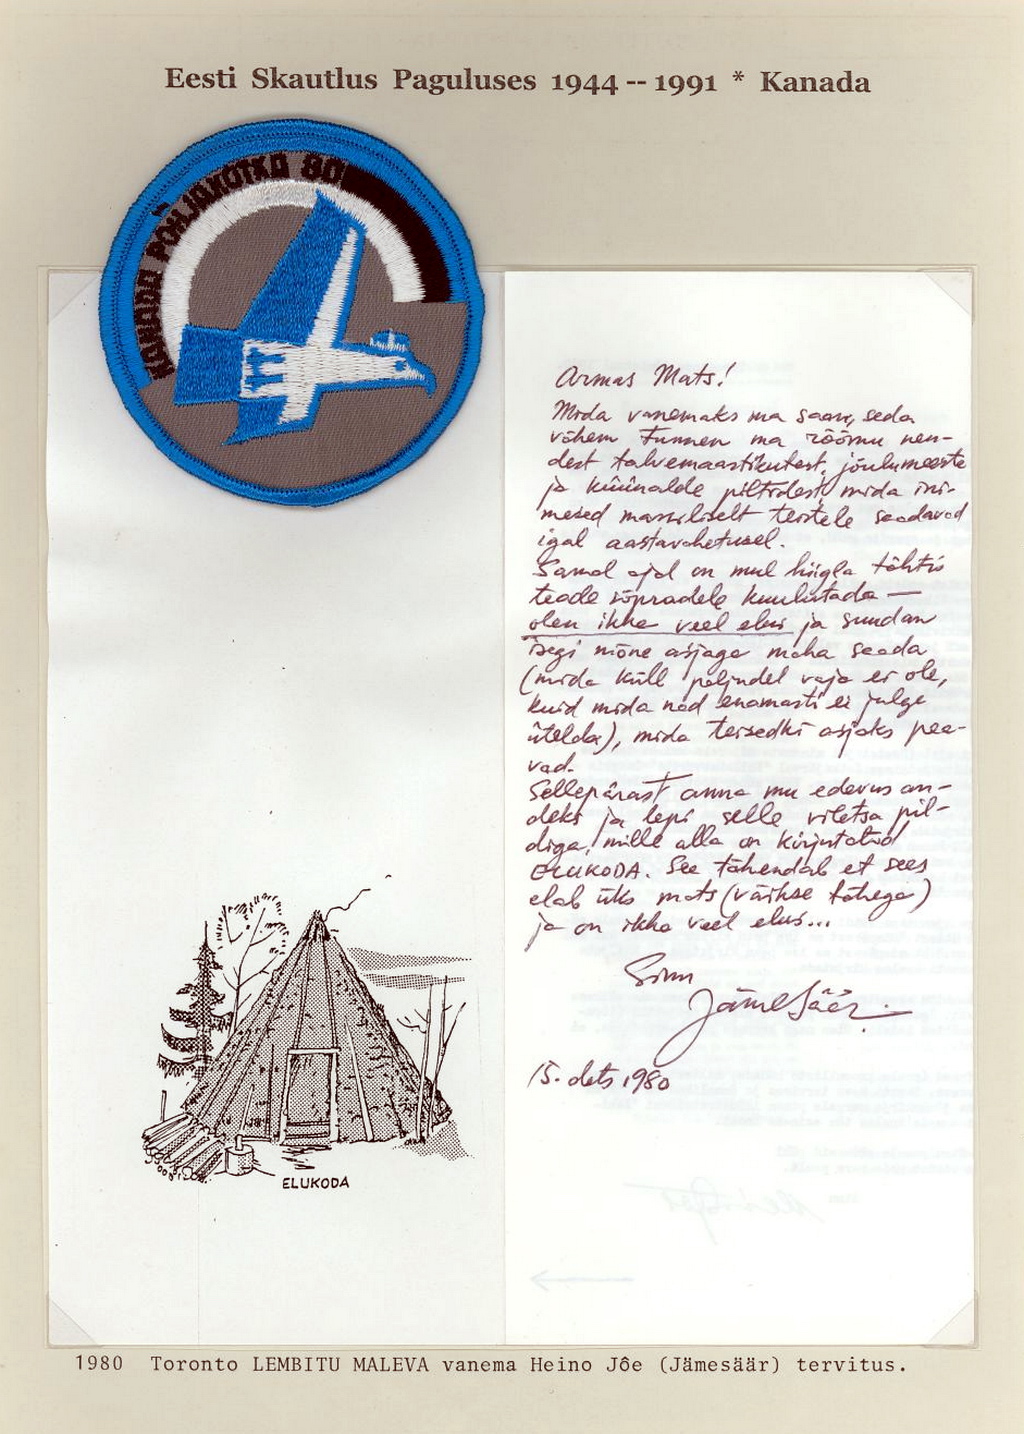 Eesti Skautlus Paguluses 1944 -- 1991 * Kanada
KANADA PÕHJAKOTKA 80
Armas Mats!
Mida vanemaks ma saan, seda
vähem tunnen ma rõõmu nen-
dest talvemaastikutest, jõulumeeste
ja küünalde piltidest mida ini-
mesed massiliselt teistele saadavad
igal aastavahetusel.
Samal ajal on mul hiigla tähtis
teade sõpradele kuulutada —
olen ikka veel elus ja suudan
isegi mõne asjaga maha saada
(mida küll paljudel vaja ei ole,
kuid mida nad enamasti ei julge
ütelda), mida teisedki asjaks pea-
vad.
Sellepärast anna mu edevus an-
deks ja lepi selle viletsa pil-
diga, mille alla on kirjutatud
ELUKODA. See tähendab et sees
elab üks mats (väikse tähega)
ja on ikka veel elus...
Sinu
Jämesäär.
15. dets 1980
ELUKODA
1980 Toronto LEMBITU MALEVA vanema Heino Jõe (Jämesäär) tervitus.